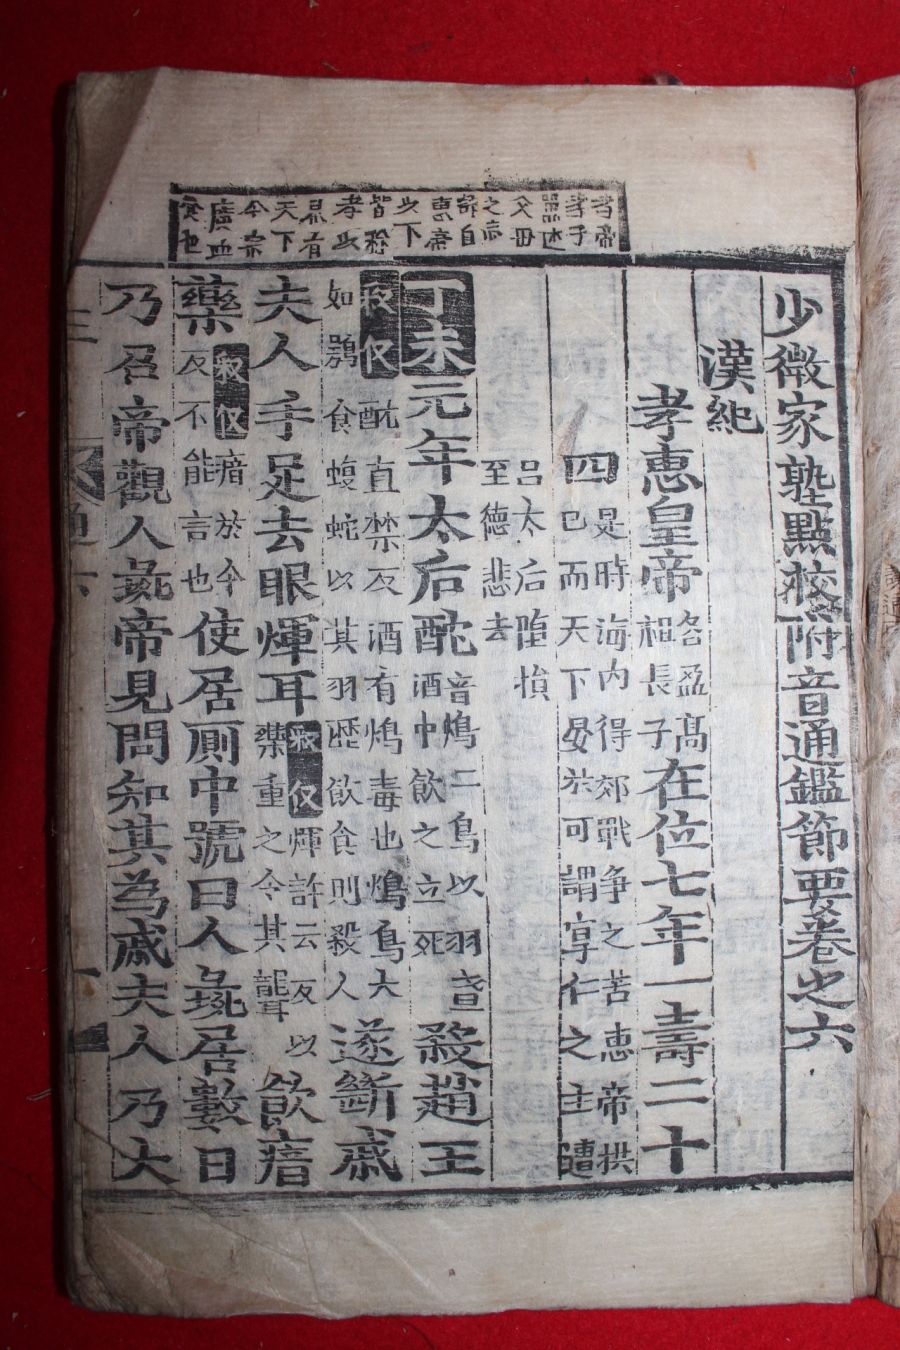 少微家塾點校附音通鑑節要卷之六
漢紀
孝惠皇帝
名盈高
祖長子
在位七年壽二十
四
是時海內得郊戰爭之苦惠帝拱
已而天下晏然可謂寬仁之主遭
呂太后虧損
至德悲夫
丁未元年太后酖
音鴆二鳥以羽畫
酒中飲之立死
殺趙王
釈仅
酖直禁反酒有鴆毒也鴆鳥大
如鶚食蝮蛇以其羽歷飲食則殺人
遂斷戚
夫人手足去眼煇耳
釈仅煇許云反以
藥熏之令其聾
飲瘖
藥
釈仅瘖於今
反不能言也
使居厠中號曰人彘居數日
乃召帝觀人彘帝見問知其為戚夫人乃大
孝帝
孝子
父母
之
自
惠帝
之下
孝
有
天下
今
食也